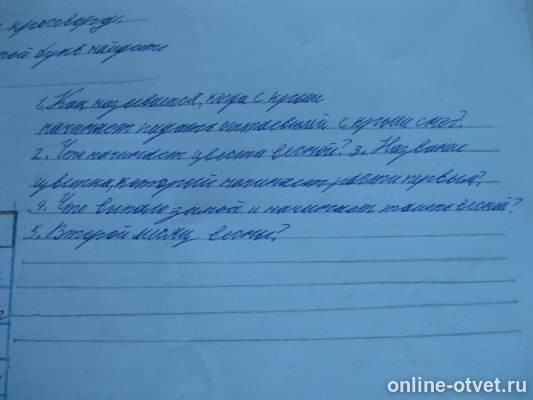 кроссворд.
букв найдите
1. Как называется, когда с крыши
начинает падать оттаевший с крыши снег?
2. Что начинает цвести весной? 3. Название
цветка, который начинает расти первый?
4. Что выпало зимой и начинает таить весной?
5. Второй месяц весны?
online-otvet.ru